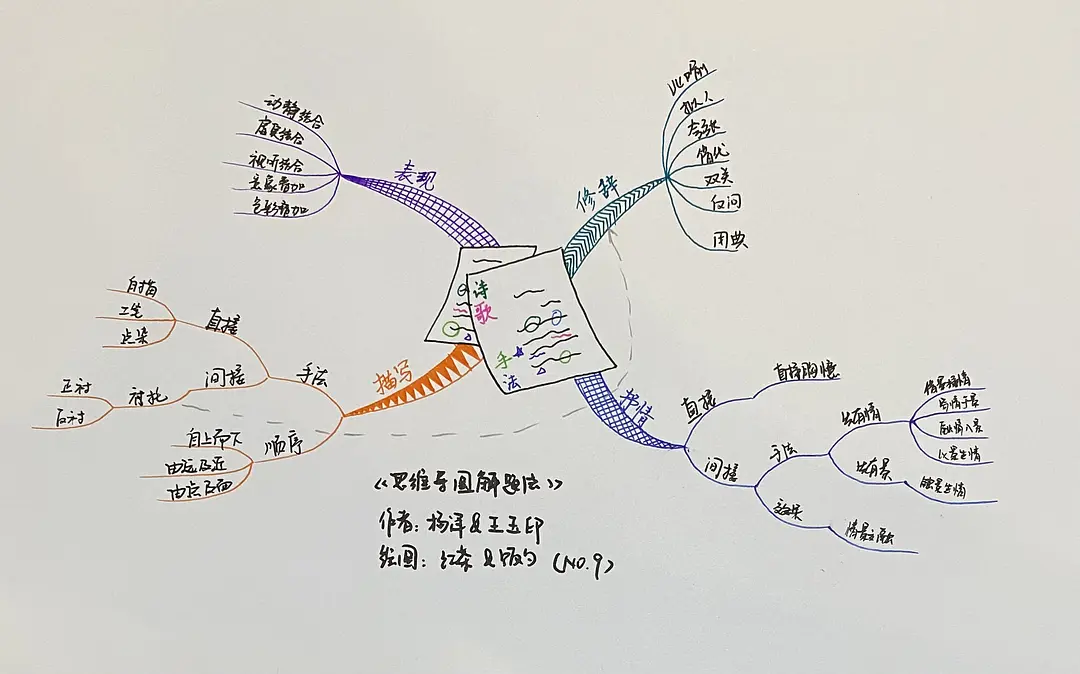 诗
歌
手
法
修辞
比喻
拟人
夸张
借代
双关
反问
用典
抒情
直接
直抒胸臆
间接
手法
先有情
借景抒情
寓情于景
融情入景
以景生情
先有景
触景生情
效果
情景交融
描写
手法
直接
白描
工笔
点染
间接
衬托
正衬
反衬
顺序
自上而下
由远及近
由点及面
表现
动静结合
虚实结合
视听结合
意象叠加
色彩叠加
《思维导图解题法》
作者：杨泽&王玉印
绘图：红茶&
(NO.9)